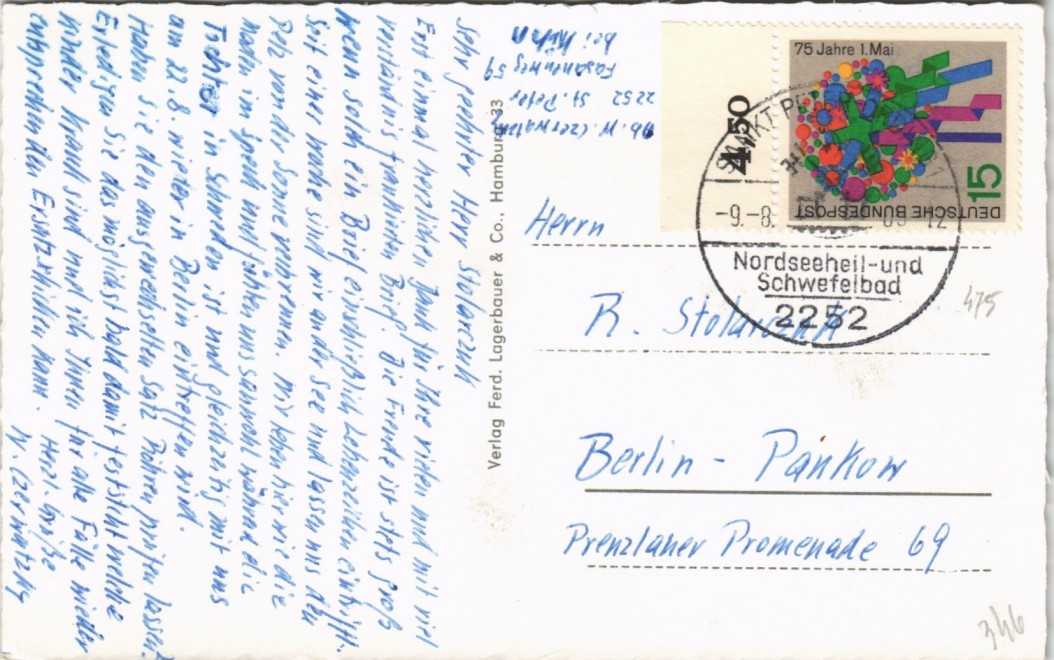 Sehr geehrter Herr Stolarczuk
Erst einmal herzlichen Dank für Ihre vielen und mit viel
Verständnis frankierten Brief. Die Freude ist stets groß
wenn solch ein Brief einschließlich Lebenszeichen eintrifft.
Seit einer Woche sind wir an der See und lassen uns den
Pelz von der Sonne verbrennen. Wir leben hier wie die
Maden im Speck und fühlen uns sauwohl während die
Tochter in Schweden ist und gleichzeitig mit uns
am 22 8 wieder in Berlin eintreffen wird.
Haben Sie den ausgewechselten Satz Polen prüfen lassen?
Erledigen Sie das möglichst bald damit feststeht welche
Marken und ich Ihnen für alle Fälle wieder
entsprechenden Ersatz schicken kann.
Herzl. Grüße
W. Czerwatzky
Ab. W. Czerwatzky
2252 St. Peter
Fasanenweg 59
bei Kühn
Verlag Ferd. Lagerbauer & Co., Hamburg 33
4.50
75 Jahre 1. Mai
15
DEUTSCHE BUNDESPOST
SANKT PE
-9.-8.
-12
Nordseeheil-und
Schwefelbad
2252
475
Herrn
R. Stolarczuk
Berlin - Pankow
Prenzlauer Promenade 69
346